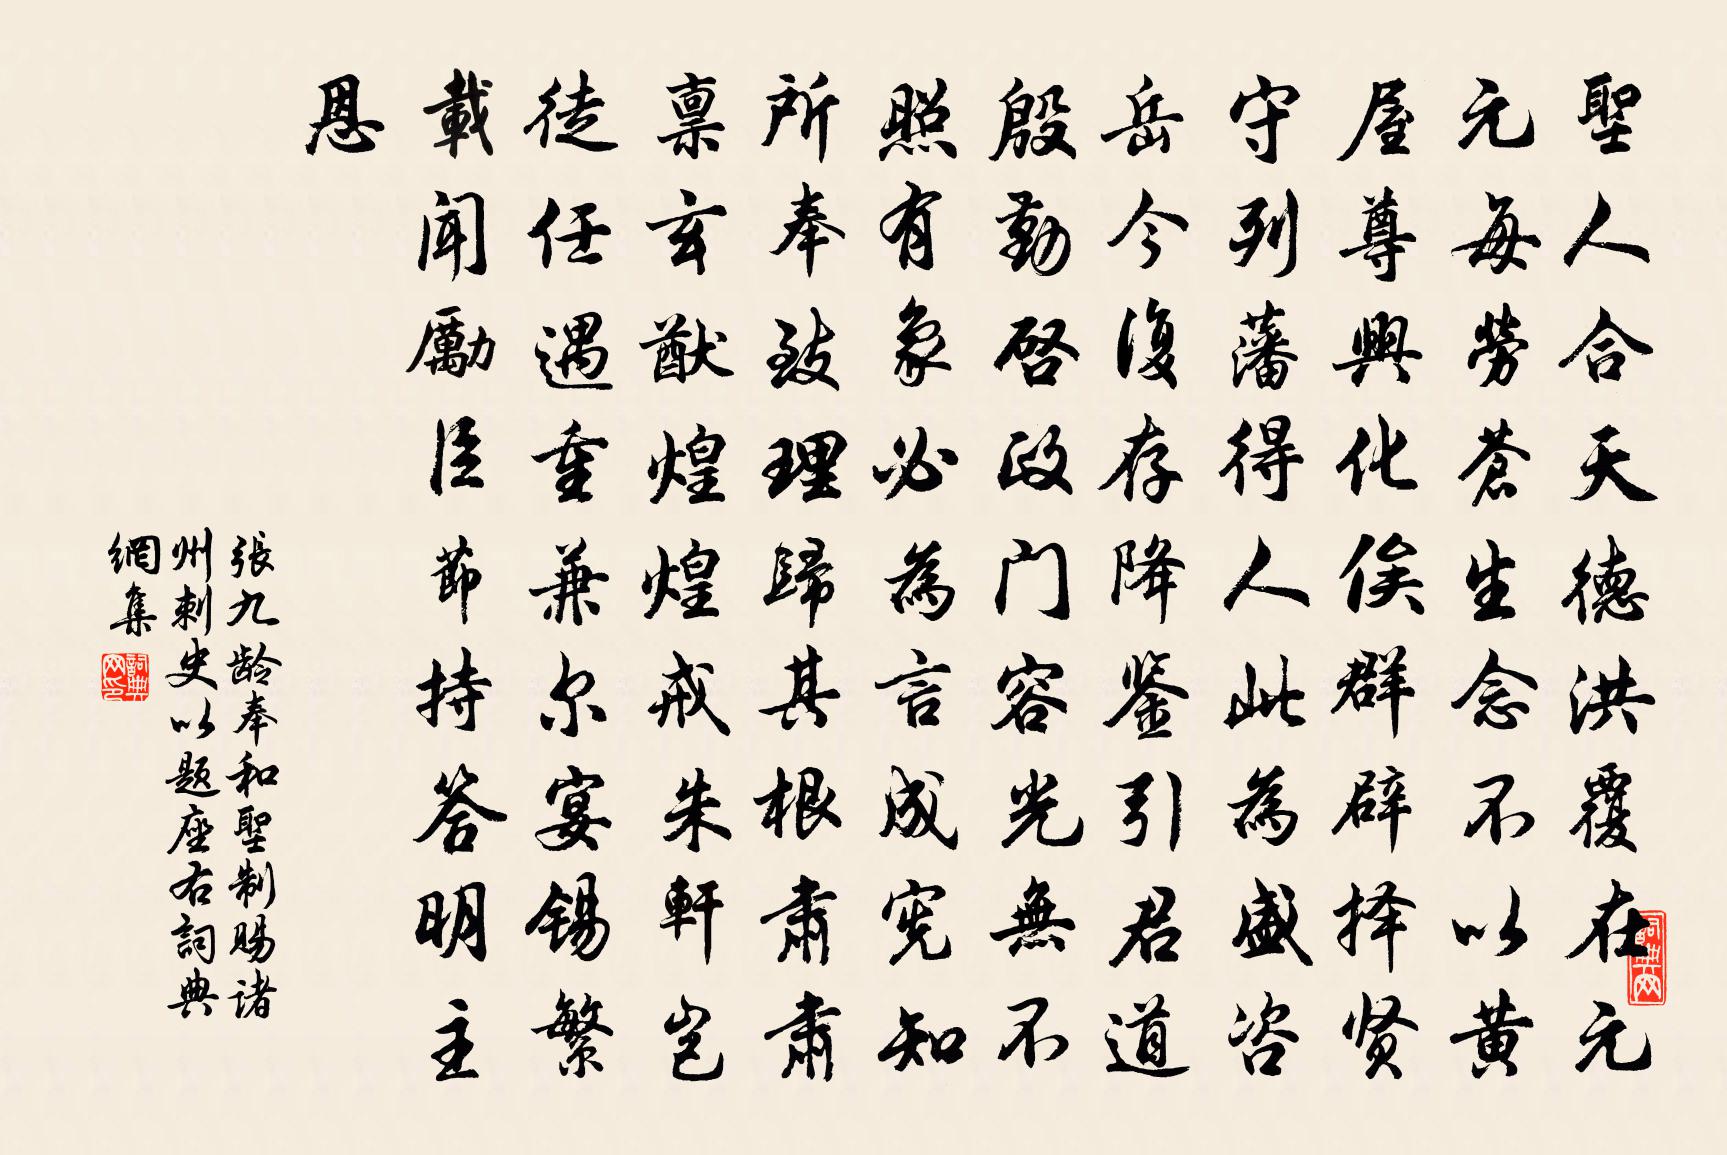 聖人合天德洪覆在元
元每勞蒼生念不以黄
屋尊興化俟群辟择贤
守列藩得人此為盛咨
岳今復存降鉴引君道
殷勤啓政门容光無不
照有象必為言成宪知
所奉致理歸其根肃肃
禀玄猷煌煌戒朱軒岂
徒任遇重兼尔宴锡繁
載聞勵臣節持答明主
恩
張九龄奉和聖制賜诸
州刺史以题座右詞典
網集
詞典网
詞典网印